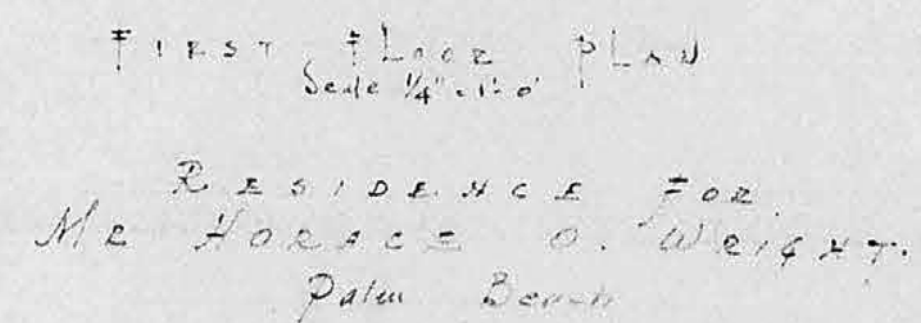 FIRST FLOOR PLAN
Scale 1/4" = 1'-0"
RESIDENCE FOR
MR HORACE O. WRIGHT.
Palm Beach